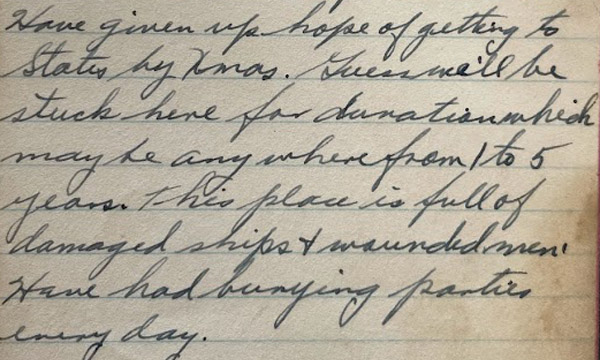 Have given up hope of getting to
States by Xmas. Guess we'll be
stuck here for duration which
may be anywhere from 1 to 5
years. This place is full of
damaged ships & wounded men.
Have had burying parties
every day.